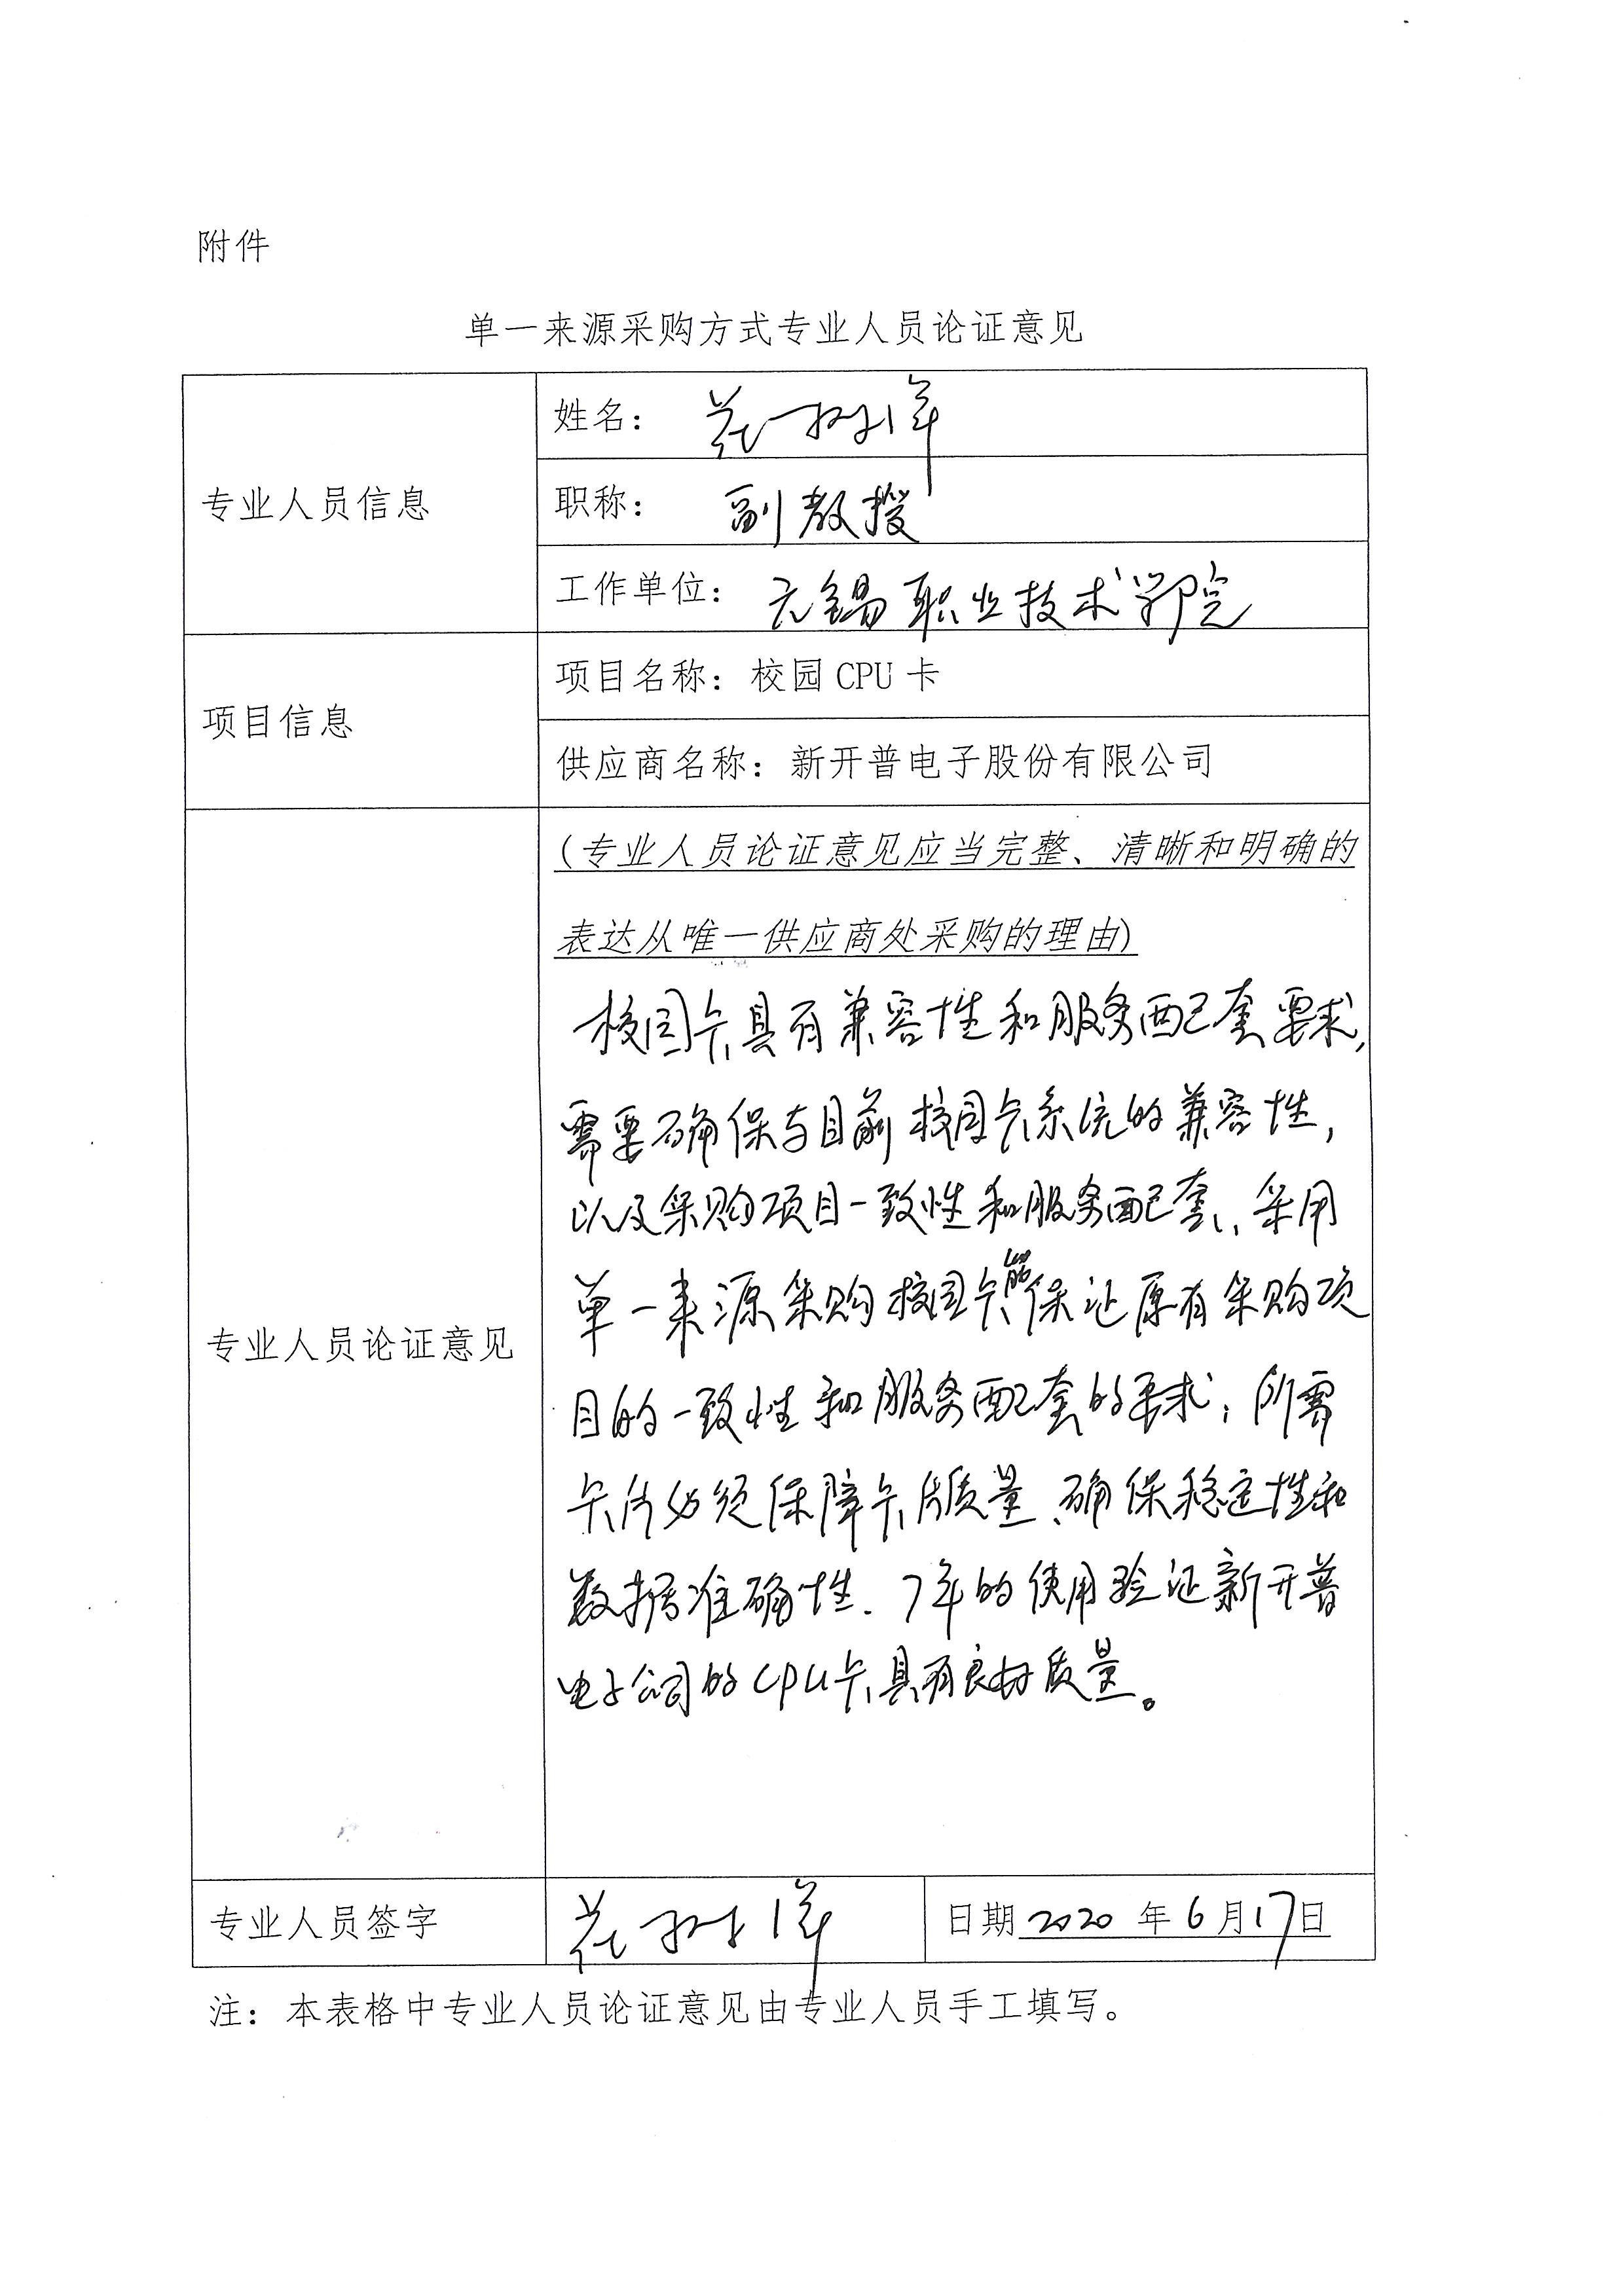 附件
单一来源采购方式专业人员论证意见
专业人员信息
姓名：
职称： 副教授
工作单位： 无锡职业技术学院
项目信息
项目名称：校园CPU卡
供应商名称：新开普电子股份有限公司
专业人员论证意见
(专业人员论证意见应当完整、清晰和明确的
表达从唯一供应商处采购的理由)
校园卡具有兼容性和服务配套要求,
需要确保与目前校园卡系统的兼容性,
以及采购项目一致性和服务配套,采用
单一来源采购校园卡能保证原有采购项
目的一致性和服务配套的要求;所需
卡片必须保障卡片质量、确保稳定性和
数据准确性.7年的使用验证新开普
电子公司的CPU卡具有良好质量。
专业人员签字
日期2020年6月17日
注：本表格中专业人员论证意见由专业人员手工填写。